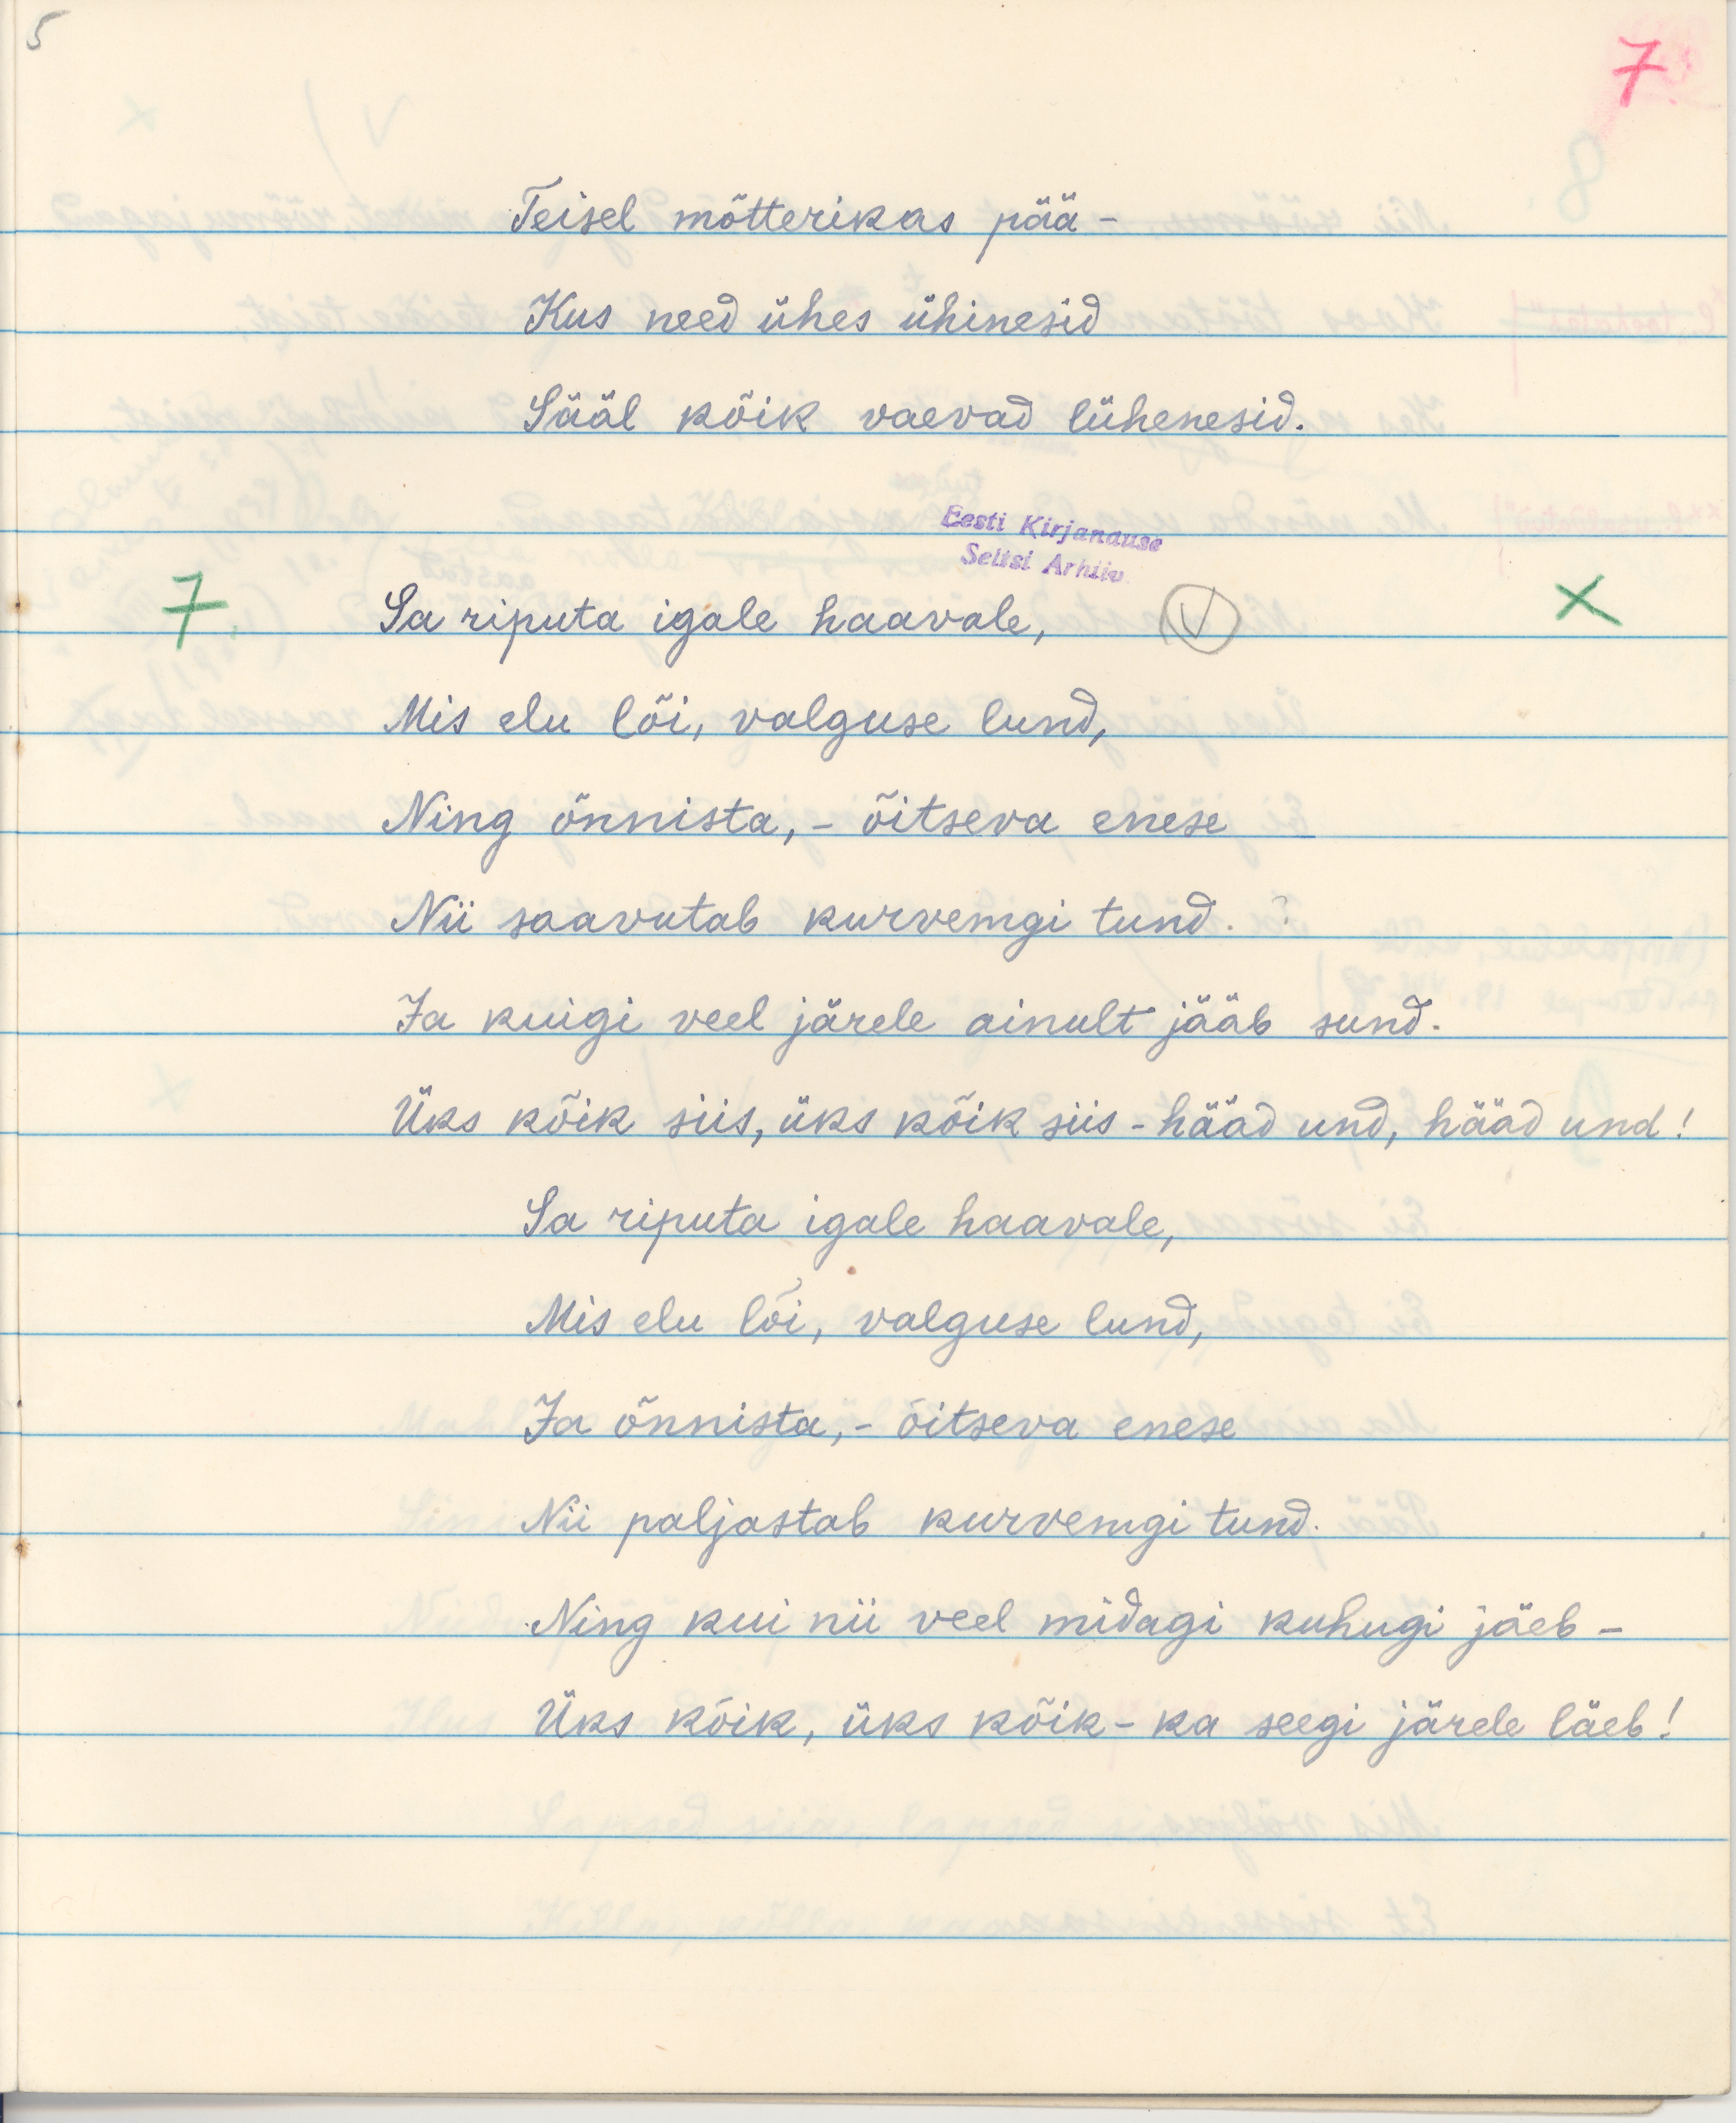 5
7
Teisel mõtterikas pää -
Kus need ühes ühinesid
Sääl kõik vaevad lühenesid.
Eesti Kirjanduse
Seltsi Arhiiv
7. Sa riputa igale haavale, V X
Mis elu lõi, valguse lund,
Ning õnnista, - õitseva enese
Nii saavutab kurvemgi tund. ?
Ja kuigi veel järele ainult jääb sund.
Üks kõik siis, üks kõik siis - hääd und, hääd und!
Sa riputa igale haavale,
Mis elu lõi, valguse lund,
Ja õnnista, - õitseva enese
Nii paljastab kurvemgi tund.
Ning kui nii veel midagi kuhugi jäeb -
Üks kõik, üks kõik - ka seegi järele läeb!